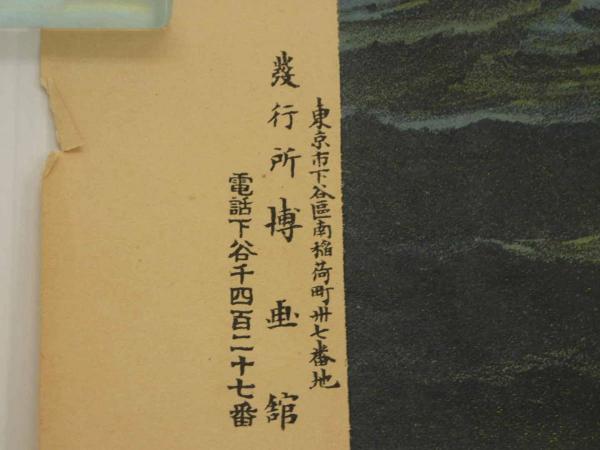 東京市下谷區南稲荷町卅七番地
發行所博画舘
電話下谷千四百二十七番